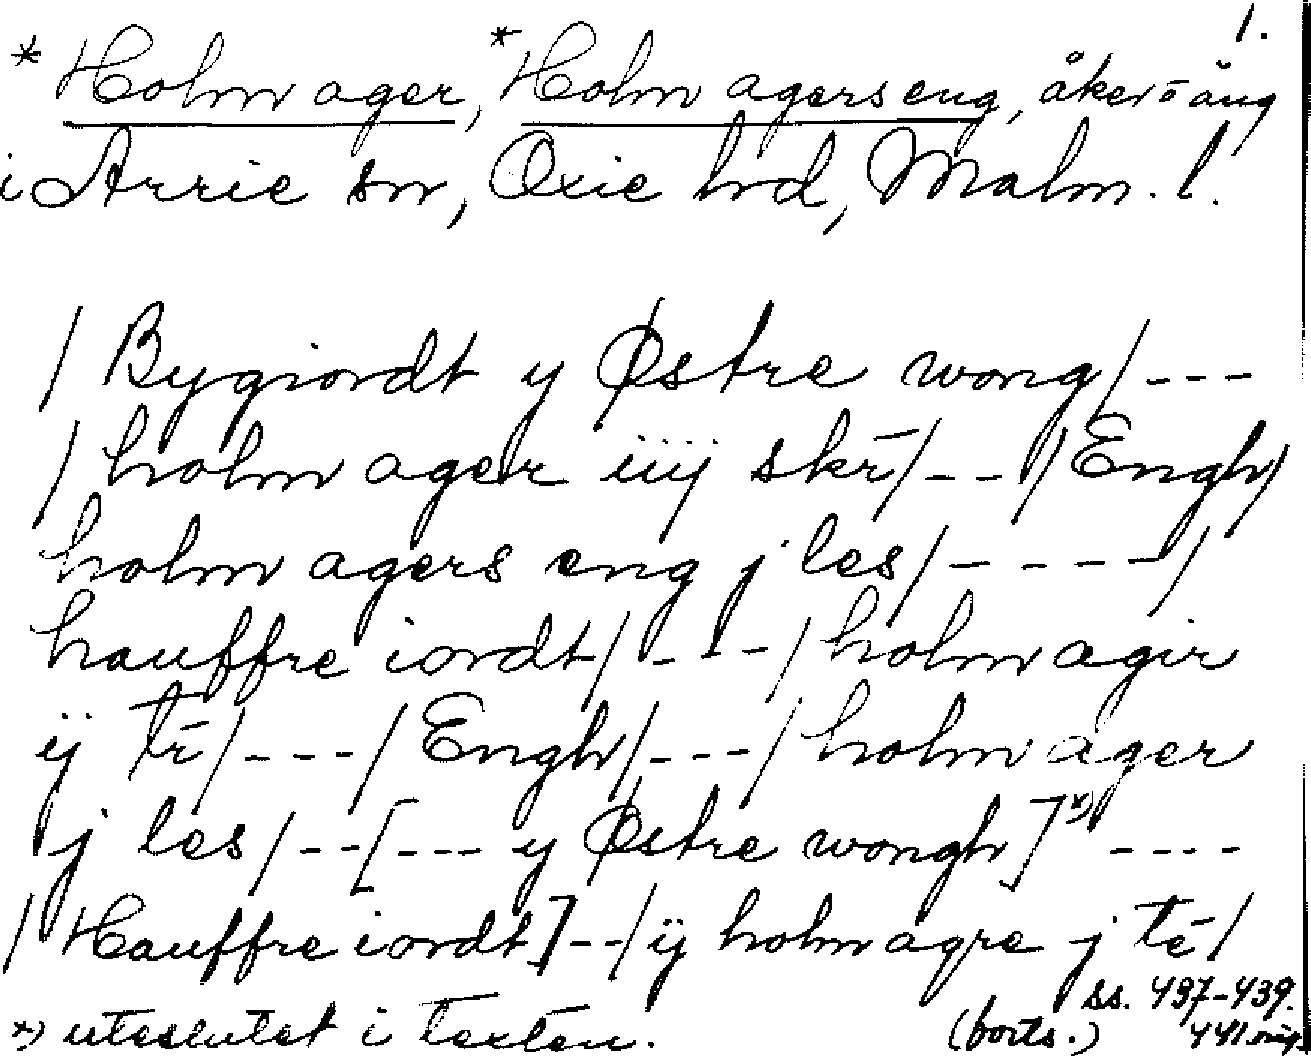 1.
* Holm ager, * Holm agers eng, åker o äng
i Arrie sn, Oxie hd, Malm. l.
/ Bygiordt y Østre wong / ---
/ holm ager iiij skr̄ / -- / Engh /
holm agers eng j les / ---- /
hauffre iordt / --- / holm agir
ij tr̄ / --- / Engh / --- / holm ager
j les / -- [ --- y Østre wongh ] *) ----
/ Hauffre iordt ] -- / ij holm agre j tē /
ss. 437-439.
*) uteslutet i texten. (forts.) 441.